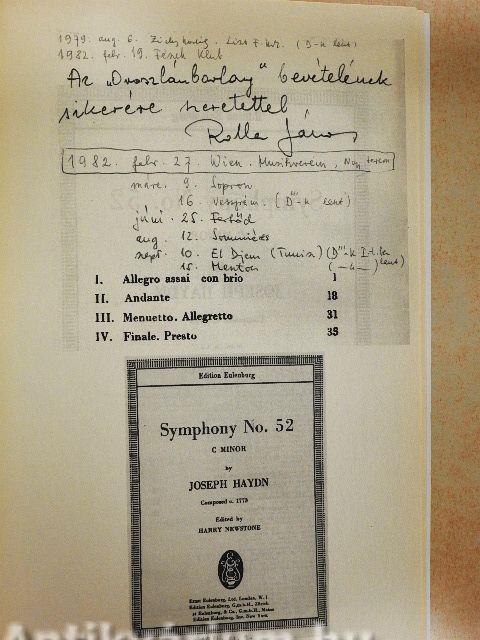 1979. aug. 6. Zichy kastély. Liszt F. kzt. (D-k lent)
1982. febr. 19. Fészek Klub
Az „Oroszlánbarlang" bevételének
sikerére szeretettel
Rolla János
1982. febr. 27. Wien. Musikverein, Nagyterem
marc. 9. Sopron
16. Veszprém. (D"'-k lent)
júni. 25. Fertőd
aug. 12. Sommières
sept. 10. El Djem (Tunis) (D"'-k
15. Menton (—"—) lent)
I. Allegro assai con brio 1
II. Andante 18
III. Menuetto. Allegretto 31
IV. Finale. Presto 35
Edition Eulenburg
Symphony No. 52
C MINOR
by
JOSEPH HAYDN
Composed c. 1773
Edited by
HARRY NEWSTONE
Ernst Eulenburg, Ltd. London, W. 1
Edition Eulenburg, G.m.b.H., Zürich
Edition Eulenburg, Inc. New York